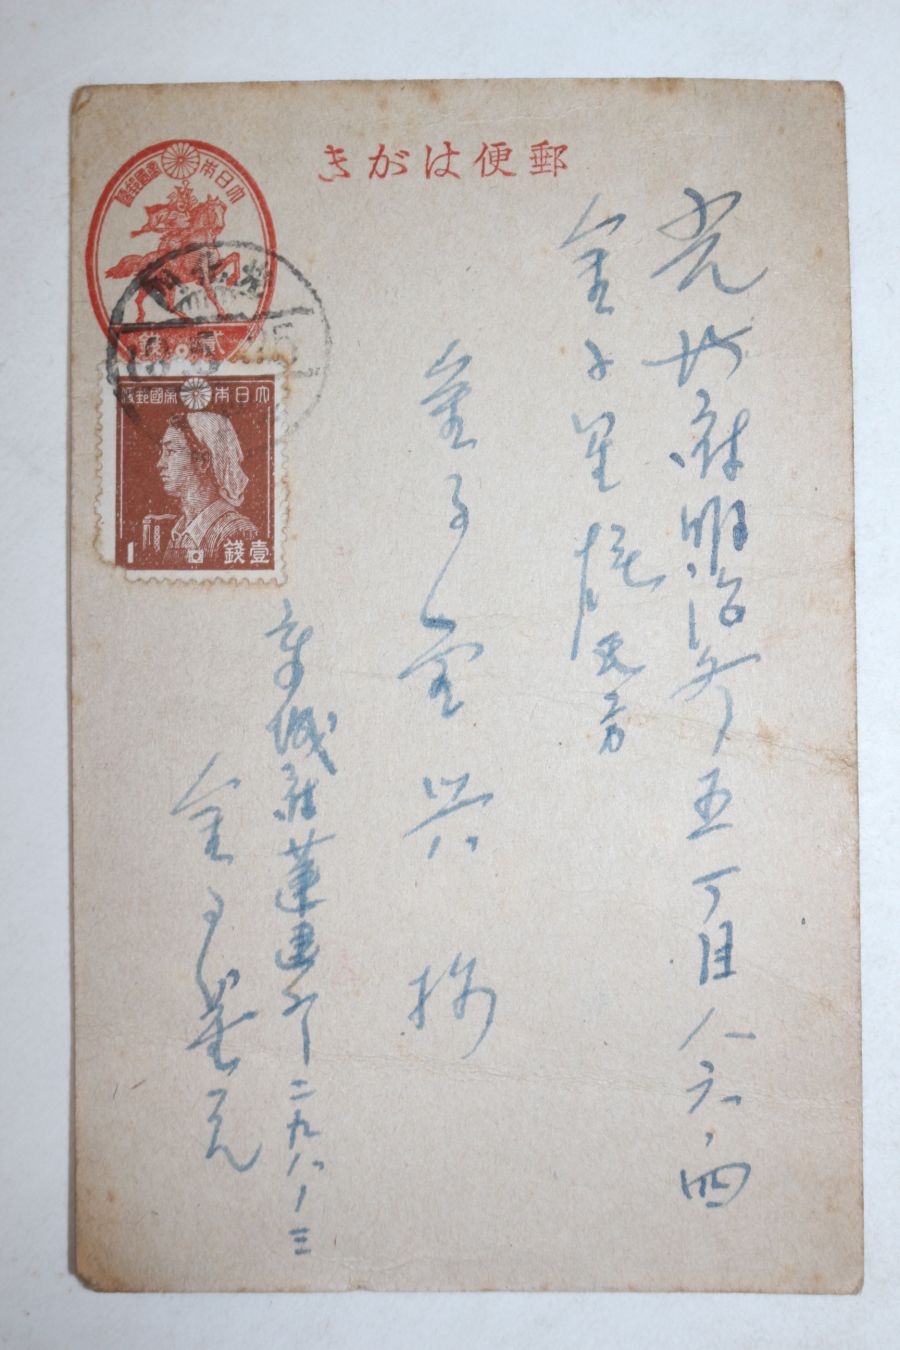 郵便はがき
大日本帝國郵便
貳錢
大日本帝國郵便
1 壹錢
光州府明治町五丁目八六ノ四
金子星 方
金子 興 様
京城府蓬莱町二九八ノ三
金子